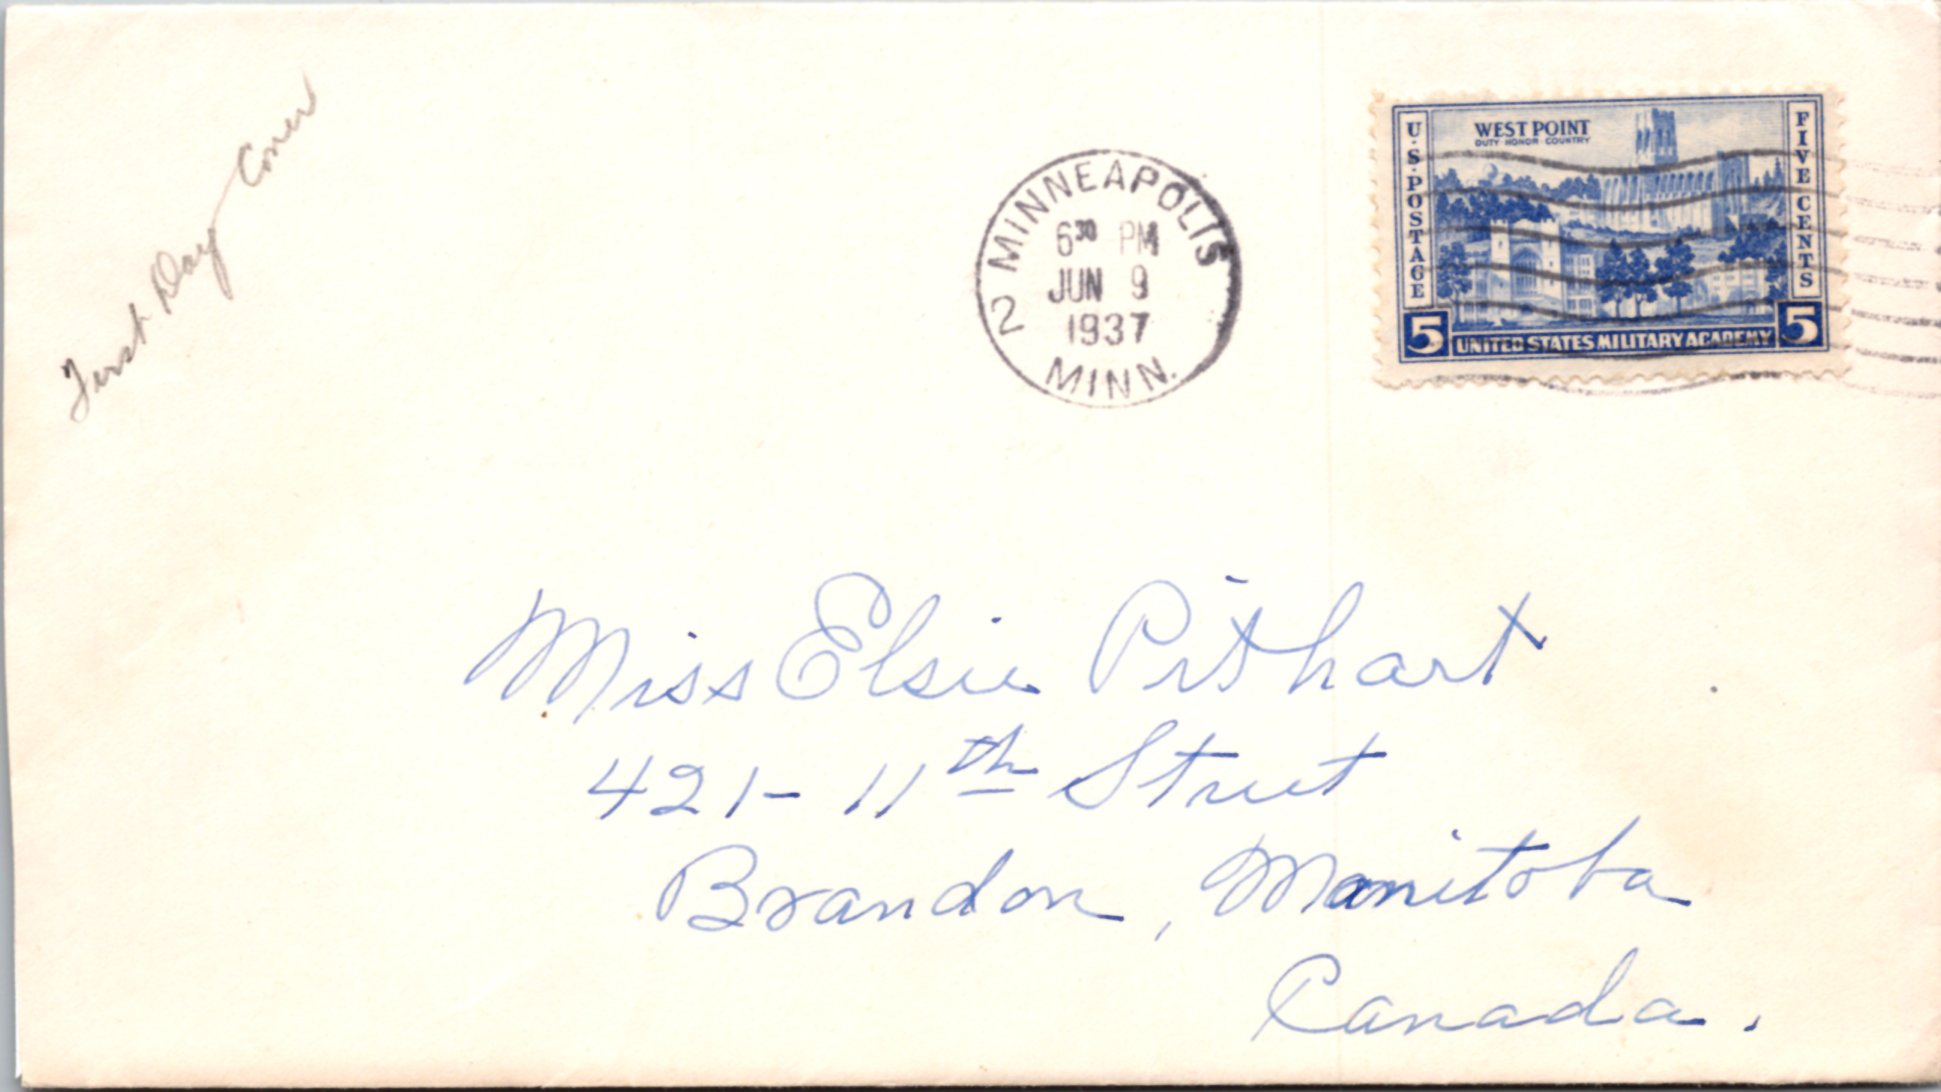 First Day Cover
MINNEAPOLIS
6 30 PM
JUN 9
1937
2
MINN.
U.S. POSTAGE
WEST POINT
DUTY HONOR COUNTRY
FIVE CENTS
5 UNITED STATES MILITARY ACADEMY 5
Miss Elsie Pithart
421 - 11th Street
Brandon, Manitoba
Canada.